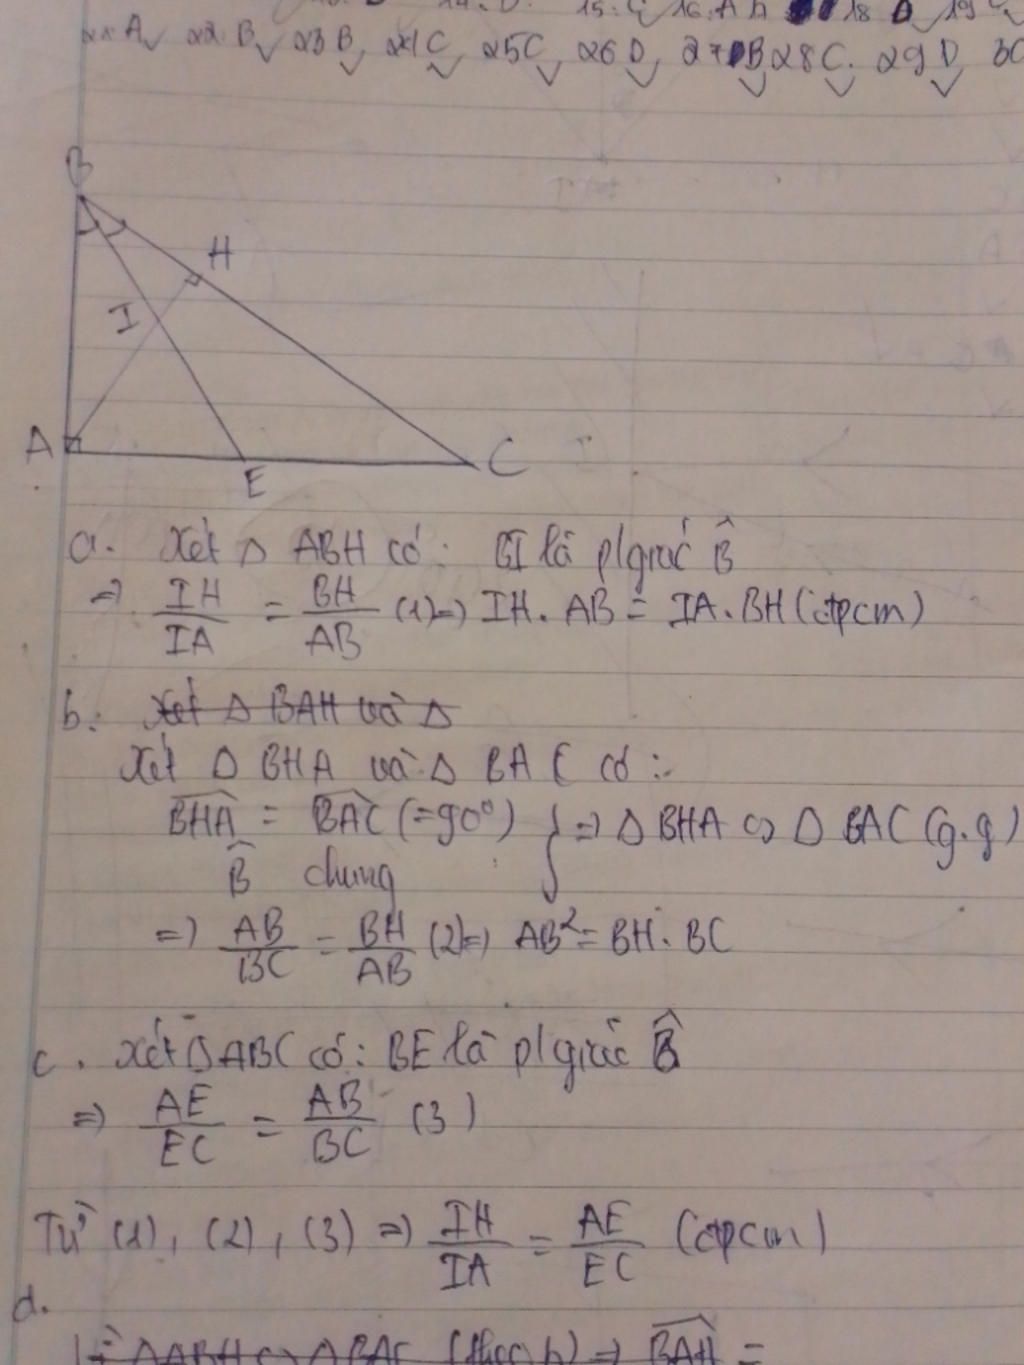 15.C 16.A 18 D 19
A 22.B 23 B, 24 C, 25C, 26 D, 27 B 28 C. 29 D 30
B
H
I
A
E
C
a. Xét Δ ABH có: BI là p/giác B̂
=> IH/IA = BH/AB (1) => IH. AB = IA.BH (đpcm)
b. Xét Δ BAH và Δ
Xét Δ BHA và Δ BAC có:
BHA = BAC (=90°) } => Δ BHA ∽ Δ BAC (g.g)
B̂ chung
=> AB/BC = BH/AB (2) => AB² = BH. BC
c. Xét Δ ABC có: BE là p/giác B̂
=> AE/EC = AB/BC (3)
Từ (1), (2), (3) => IH/IA = AE/EC (đpcm)
d.
Vì ΔABH ∽ ΔBAC (theo b) => BAH =